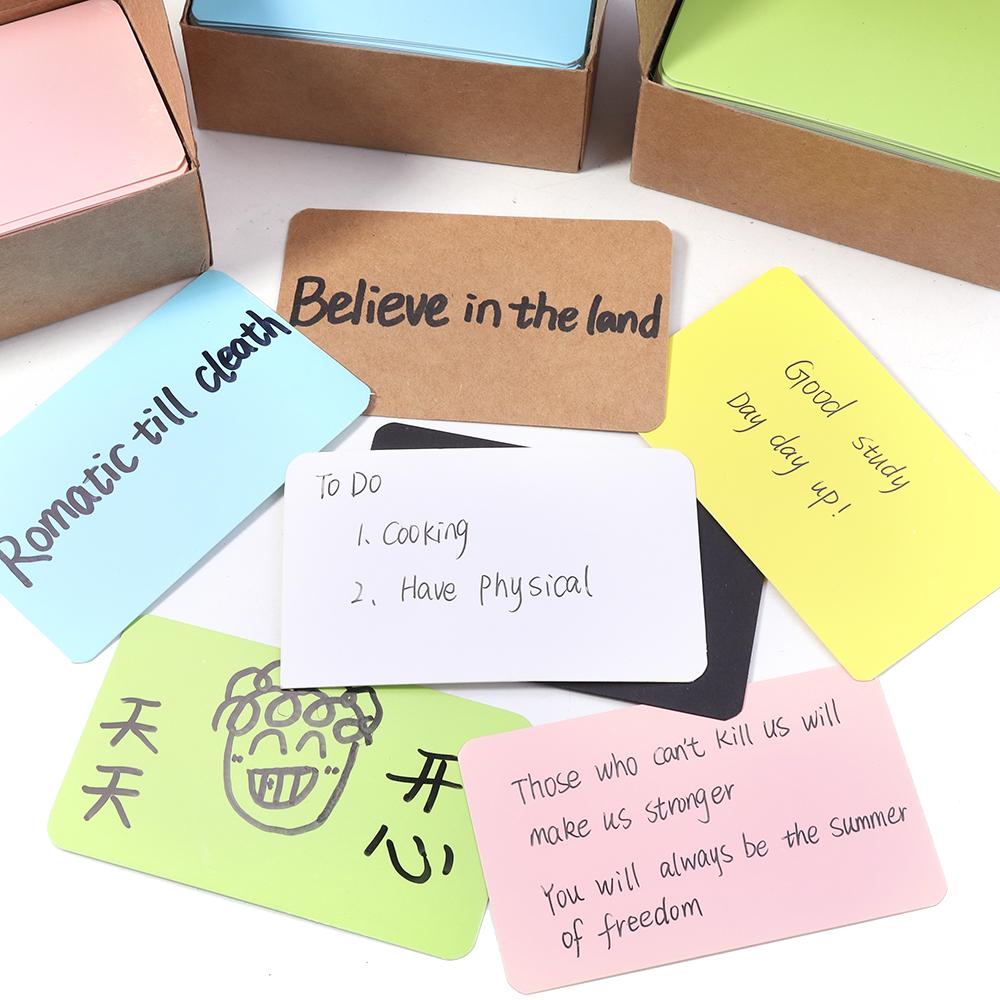 Believe in the land
Romatic till cleath
Good study
Day day up!
To Do
1. Cooking
2. Have physical
天天
开心
Those who can't kill us will
make us stronger
You will always be the summer
of freedom